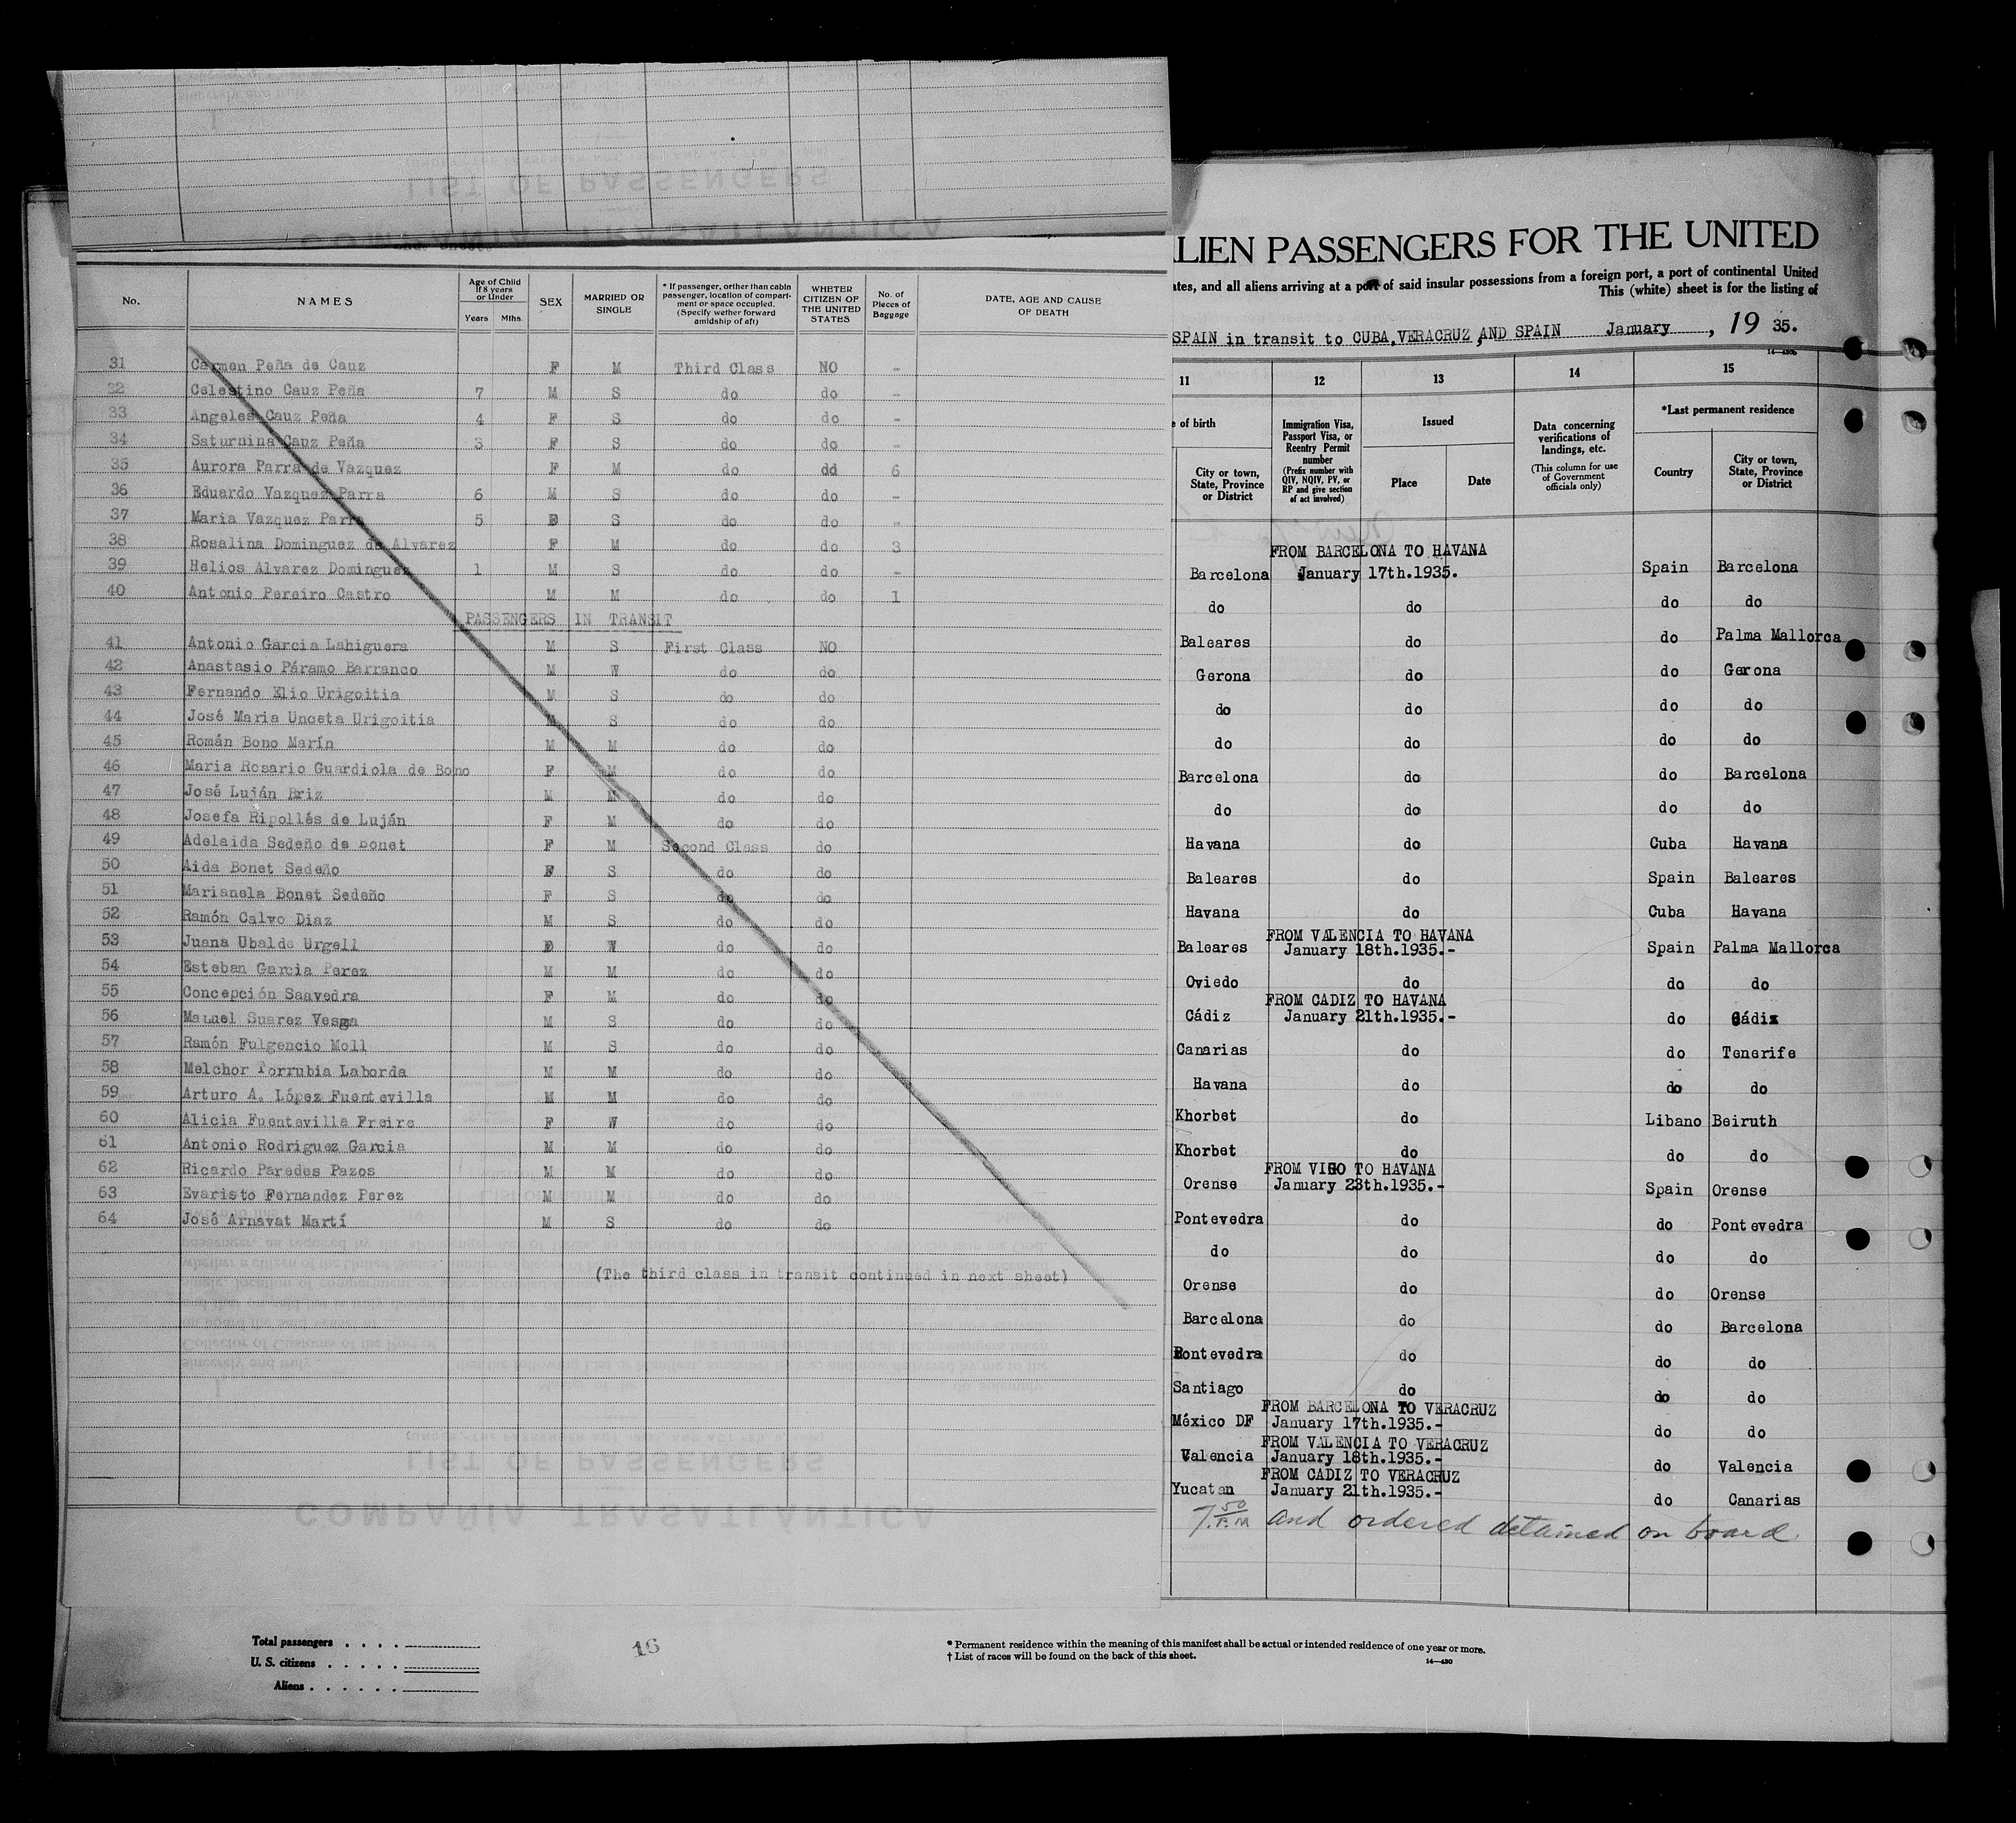 No. NAMES Age of Child If 8 years or Under Years Mths. SEX MARRIED OR SINGLE * If passenger, orther than cabin passenger, location of compartment or space occupied. (Specify wether forward amidship of aft) WHETER CITIZEN OF THE UNITED STATES No. of Pieces of Baggage DATE, AGE AND CAUSE OF DEATH
31 Carmen Peña de Cauz F M Third Class NO -
32 Celestino Cauz Peña 7 M S do do -
33 Angeles Cauz Peña 4 F S do do -
34 Saturnina Cauz Peña 3 F S do do -
35 Aurora Parra de Vazquez F M do dd 6
36 Eduardo Vazquez Parra 6 M S do do -
37 Maria Vazquez Parra 5 S do do -
38 Rosalina Dominguez de Alvarez F M do do 3
39 Helios Alvarez Dominguez 1 M S do do -
40 Antonio Pereiro Castro M M do do 1
PASSENGERS IN TRANSIT
41 Antonio Garcia Lahiguera M S First Class NO
42 Anastasio Páramo Barranco M W do do
43 Fernando Elio Urigoitia M S do do
44 José Maria Unceta Urigoitia M S do do
45 Román Bono Marín M M do do
46 Maria Rosario Guardiola de Bono F M do do
47 José Luján Briz M M do do
48 Josefa Ripollés de Luján F M do do
49 Adelaida Sedeño de Bonet F M Second Class do
50 Aida Bonet Sedeño F S do do
51 Marianela Bonet Sedeño F S do do
52 Ramón Calvo Diaz M S do do
53 Juana Ubalde Urgell W do do
54 Esteban Garcia Perez M M do do
55 Concepción Saavedra F M do do
56 Manuel Suarez Vesga M S do do
57 Ramón Fulgencio Moll M S do do
58 Melchor Torrubia Laborda M M do do
59 Arturo A. López Fuentevilla M M do do
60 Alicia Fuenteville Freire F W do do
61 Antonio Rodriguez Garcia M M do do
62 Ricardo Paredes Pazos M M do do
63 Evaristo Fernandez Perez M M do do
64 José Arnavat Martí M S do do
(The third class in transit continued in next sheet)
LIEN PASSENGERS FOR THE UNITED
ates, and all aliens arriving at a port of said insular possessions from a foreign port, a port of continental United
This (white) sheet is for the listing of
SPAIN in transit to CUBA, VERACRUZ AND SPAIN January, 19 35.
11 12 13 14 15
of birth City or town, State, Province or District Immigration Visa, Passport Visa, or Reentry Permit number (Prefix number with QIV, NQIV, PV, or RP and give section of act involved) Issued Place Date Data concerning verifications of landings, etc. (This column for use of Government officials only) *Last permanent residence Country City or town, State, Province or District
FROM BARCELONA TO HAVANA
Barcelona January 17th.1935. Spain Barcelona
do do do do
Baleares do do Palma Mallorca
Gerona do do Gerona
do do do do
do do do do
Barcelona do do Barcelona
do do do do
Havana do Cuba Havana
Baleares do Spain Baleares
Havana do Cuba Havana
FROM VALENCIA TO HAVANA
Baleares January 18th.1935.- Spain Palma Mallorca
Oviedo do do do
FROM CADIZ TO HAVANA
Cádiz January 21th.1935.- do Cádiz
Canarias do do Tenerife
Havana do do do
Khorbet do Libano Beiruth
Khorbet do do do
FROM VIGO TO HAVANA
Orense January 23th.1935.- Spain Orense
Pontevedra do do Pontevedra
do do do do
Orense do do Orense
Barcelona do do Barcelona
Pontevedra do do do
Santiago do do do
FROM BARCELONA TO VERACRUZ
México DF January 17th.1935.- do do
FROM VALENCIA TO VERACRUZ
Valencia January 18th.1935.- do Valencia
FROM CADIZ TO VERACRUZ
Yucatan January 21th.1935.- do Canarias
7.50 P.M and ordered detained on board.
Total passengers . . . .
U. S. citizens . . . . .
Aliens . . . . . .
16
* Permanent residence within the meaning of this manifest shall be actual or intended residence of one year or more.
† List of races will be found on the back of this sheet.
14—430